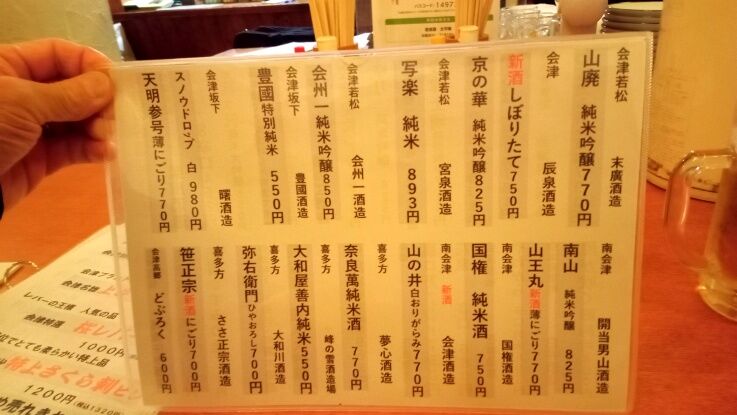 会津若松 末廣酒造
山廃 純米吟醸770円
会津 辰泉酒造
新酒しぼりたて750円
京の華 純米吟醸825円
会津若松 宮泉酒造
写楽 純米 893円
会津若松 会州一酒造
会州一純米吟醸850円
会津坂下 豊國酒造
豊國特別純米 550円
会津坂下 曙酒造
スノウドロップ 白 980円
天明参号薄にごり770円
南会津 開当男山酒造
南山 純米吟醸 825円
山王丸新酒薄にごり770円
南会津 国権酒造
国権 純米酒 750円
南会津 新酒 会津酒造
山の井白おりがらみ770円
喜多方 夢心酒造
奈良萬純米酒 770円
喜多方 峰の雪酒造場
大和屋善内純米550円
喜多方 大和川酒造
弥右衛門ひやおろし700円
喜多方 ささ正宗酒造
笹正宗新酒にごり700円
会津高郷 どぶろく 600円
パスコード:1497
会津ブラン
会津名物
レバーの王様 人気の品
会津特選 桜レバ
1000円
とても柔らかい特上品
特上さくら刺
1200円(税込1320